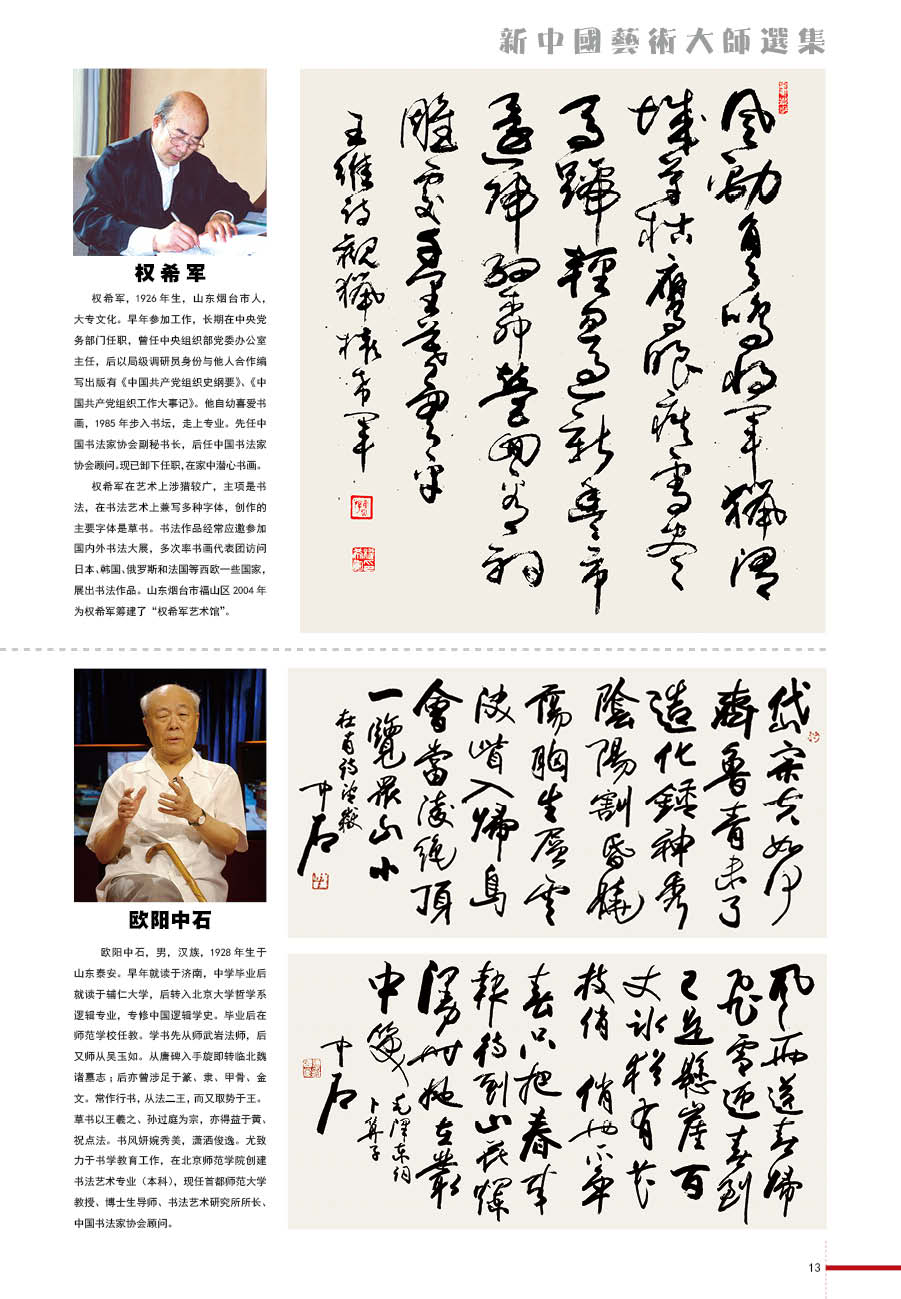 新中國藝術大師選集
权希军
权希军，1926年生，山东烟台市人，
大专文化。早年参加工作，长期在中央党
务部门任职，曾任中央组织部党委办公室
主任，后以局级调研员身份与他人合作编
写出版有《中国共产党组织史纲要》、《中
国共产党组织工作大事记》。他自幼喜爱书
画，1985年步入书坛，走上专业。先任中
国书法家协会副秘书长，后任中国书法家
协会顾问。现已卸下任职，在家中潜心书画。
权希军在艺术上涉猎较广，主项是书
法，在书法艺术上兼写多种字体，创作的
主要字体是草书。书法作品经常应邀参加
国内外书法大展，多次率书画代表团访问
日本、韩国、俄罗斯和法国等西欧一些国家，
展出书法作品。山东烟台市福山区2004年
为权希军筹建了“权希军艺术馆”。
風勁角弓鳴將軍獵渭
城草枯鷹眼疾雪盡
馬蹄輕忽過新豐市
還歸細柳營回看射
雕處千里暮雲平
王維詩觀獵權希軍
欧阳中石
欧阳中石，男，汉族，1928年生于
山东泰安。早年就读于济南，中学毕业后
就读于辅仁大学，后转入北京大学哲学系
逻辑专业，专修中国逻辑学史。毕业后在
师范学校任教。学书先从师武岩法师，后
又师从吴玉如。从唐碑入手旋即转临北魏
诸墓志；后亦曾涉足于篆、隶、甲骨、金
文。常作行书，从法二王，而又取势于王。
草书以王羲之、孙过庭为宗，亦得益于黄、
祝点法。书风妍婉秀美，潇洒俊逸。尤致
力于书学教育工作，在北京师范学院创建
书法艺术专业（本科），现任首都师范大学
教授、博士生导师、书法艺术研究所所长、
中国书法家协会顾问。
岱宗夫如何
齊魯青未了
造化鍾神秀
陰陽割昏曉
蕩胸生層雲
決眥入歸鳥
會當凌絕頂
一覽眾山小
杜甫詩望嶽
中石
風雨送春歸
飛雪迎春到
已是懸崖百
丈冰猶有花
枝俏 俏也不爭
春只把春來
報待到山花爛
漫時她在叢
中笑
毛澤東詞
卜算子
中石
13